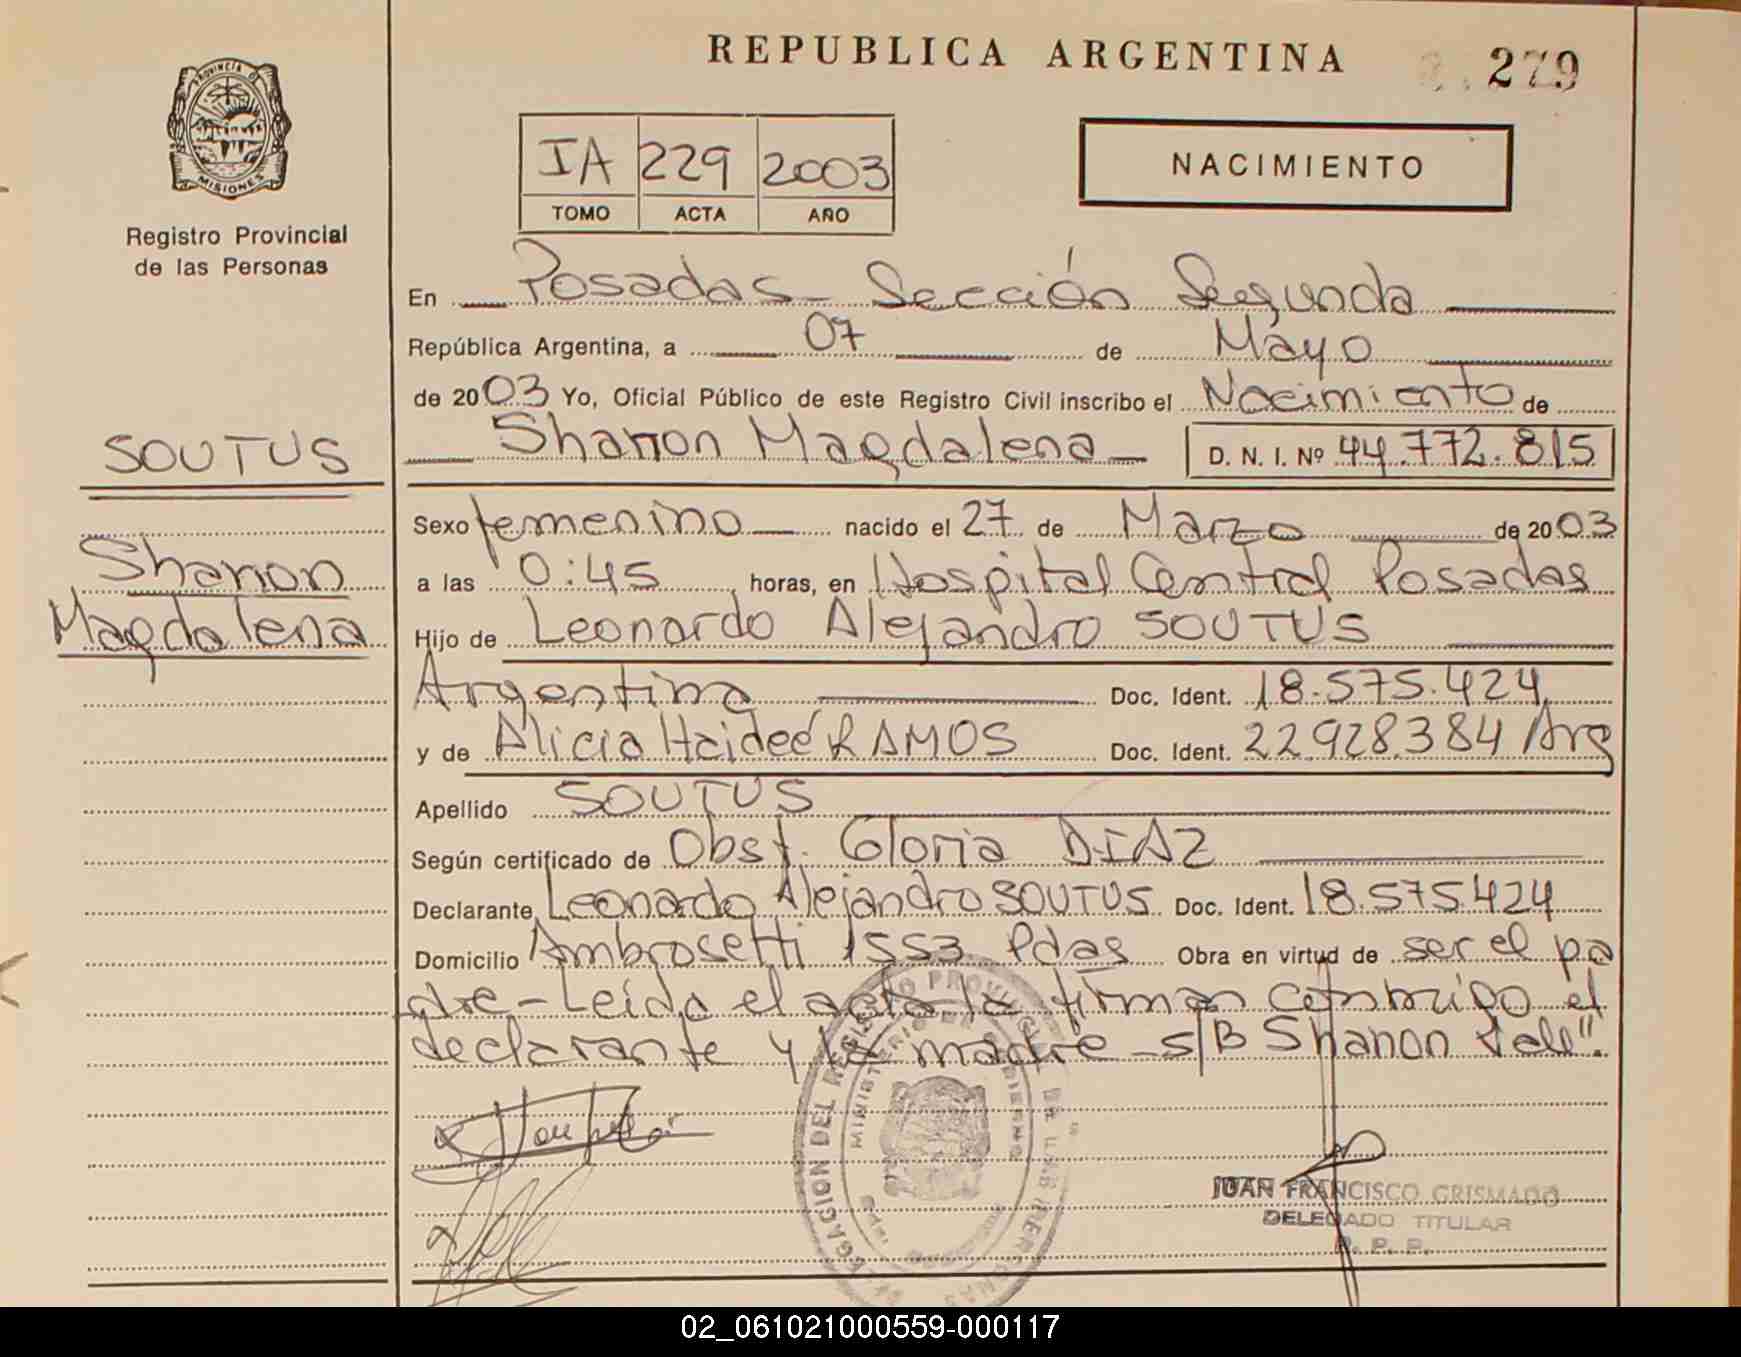 REPUBLICA ARGENTINA
279
PROVINCIA DE
MISIONES
Registro Provincial
de las Personas
IA 229 2003
TOMO ACTA AÑO
NACIMIENTO
En Posadas - Sección Segunda
República Argentina, a 07 de Mayo
de 2003 Yo, Oficial Público de este Registro Civil inscribo el Nacimiento de
Shanon Magdalena D. N. I. Nº 44.772.815
SOUTUS
Shanon
Magdalena
Sexo femenino nacido el 27 de Marzo de 2003
a las 0:45 horas, en Hospital Central Posadas
Hijo de Leonardo Alejandro SOUTUS
Argentina Doc. Ident. 18.575.424
y de Alicia Haideé RAMOS Doc. Ident. 22.928.384 /Arg
Apellido SOUTUS
Según certificado de Obst. Gloria DIAZ
Declarante Leonardo Alejandro SOUTUS Doc. Ident. 18.575.424
Domicilio Ambrosetti 1553 Pdas Obra en virtud de ser el pa
dre - Leída el acta la firman conmigo el
declarante y la madre - s/B Shanon Vale".
DELEGACION DEL REGISTRO PROVINCIAL DE LAS PERSONAS
MINISTERIO DE GOBIERNO
JUAN FRANCISCO GRISMADO
DELEGADO TITULAR
R. P. P.
02_061021000559-000117